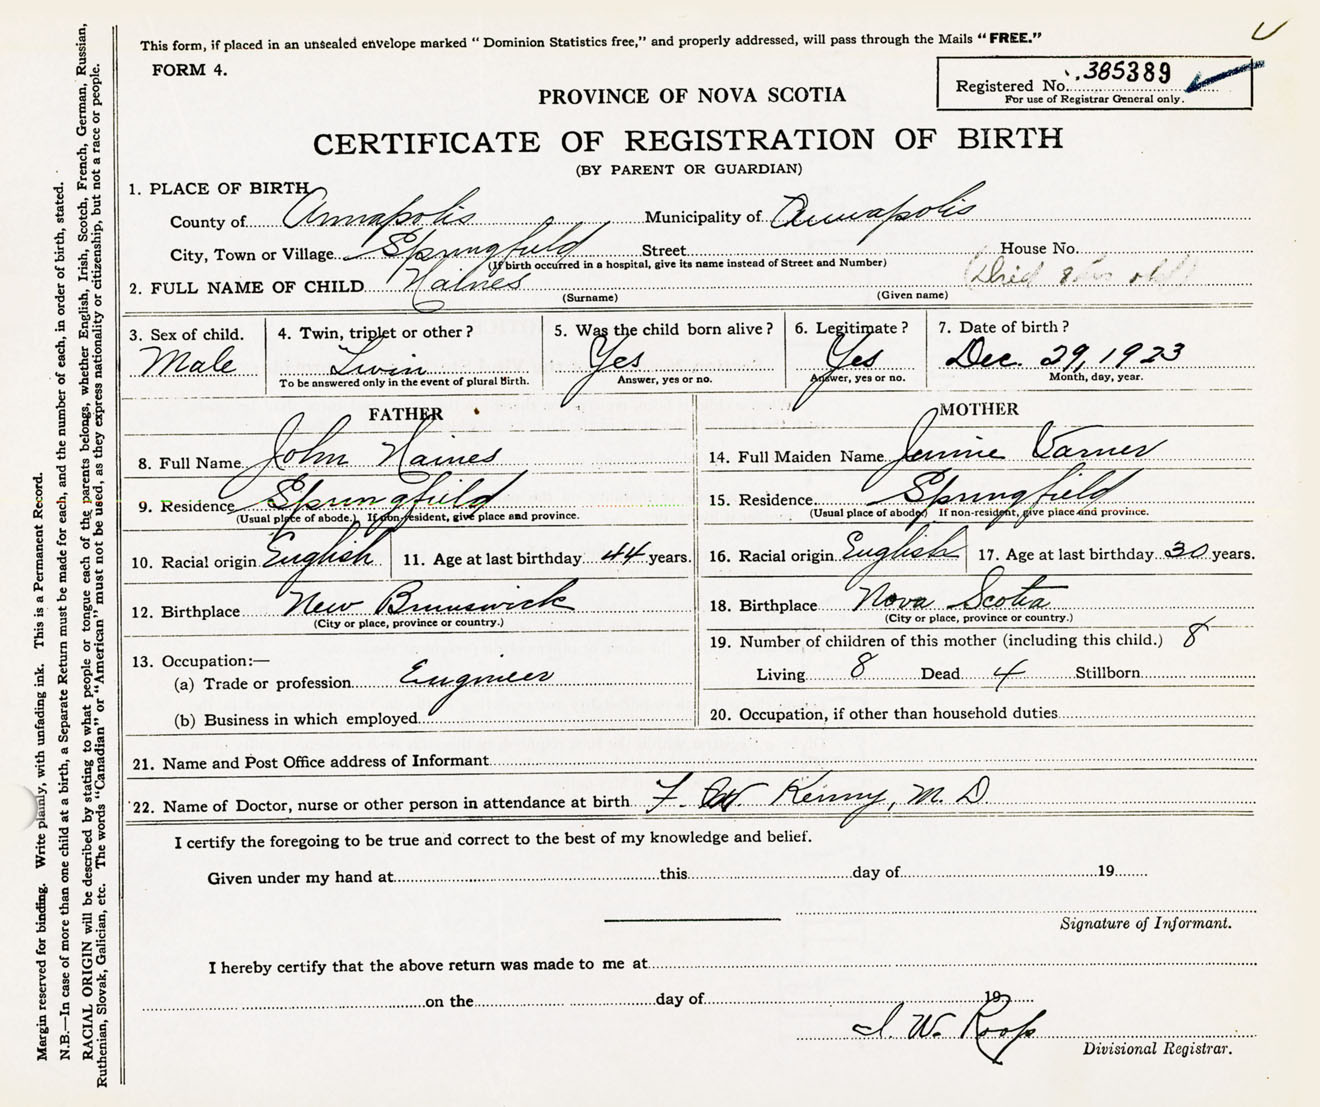 This form, if placed in an unsealed envelope marked "Dominion Statistics free," and properly addressed, will pass through the Mails "FREE."
FORM 4.
Registered No. 385389
For use of Registrar General only.
PROVINCE OF NOVA SCOTIA
CERTIFICATE OF REGISTRATION OF BIRTH
(BY PARENT OR GUARDIAN)
1. PLACE OF BIRTH
County of Annapolis Municipality of Annapolis
City, Town or Village Springfield Street House No.
(If birth occurred in a hospital, give its name instead of Street and Number)
2. FULL NAME OF CHILD Haines (Died
(Surname) (Given name)
3. Sex of child. 4. Twin, triplet or other? 5. Was the child born alive? 6. Legitimate? 7. Date of birth?
Male Twin Yes Yes Dec. 29, 1923
To be answered only in the event of plural Birth. Answer, yes or no. Answer, yes or no. Month, day, year.
FATHER
8. Full Name John Haines
9. Residence Springfield
(Usual place of abode.) If non-resident, give place and province.
10. Racial origin English 11. Age at last birthday 44 years.
12. Birthplace New Brunswick
(City or place, province or country.)
13. Occupation:—
(a) Trade or profession Engineer
(b) Business in which employed
MOTHER
14. Full Maiden Name Jennie Varner
15. Residence Springfield
(Usual place of abode) If non-resident, give place and province.
16. Racial origin English 17. Age at last birthday 30 years.
18. Birthplace Nova Scotia
(City or place, province or country.)
19. Number of children of this mother (including this child.) 8
Living 8 Dead 4 Stillborn
20. Occupation, if other than household duties
21. Name and Post Office address of Informant
22. Name of Doctor, nurse or other person in attendance at birth F. W Kenny, M. D
I certify the foregoing to be true and correct to the best of my knowledge and belief.
Given under my hand at this day of 19
Signature of Informant.
I hereby certify that the above return was made to me at
on the day of 19
I. W. Roop
Divisional Registrar.
Margin reserved for binding. Write plainly, with unfading ink. This is a Permanent Record.
N.B.—In case of more than one child at a birth, a Separate Return must be made for each, and the number of each, in order of birth, stated.
RACIAL ORIGIN will be described by stating to what people or tongue each of the parents belongs, whether English, Irish, Scotch, French, German, Russian,
Ruthenian, Slovak, Galician, etc. The words "Canadian" or "American" must not be used, as they express nationality or citizenship, but not a race or people.